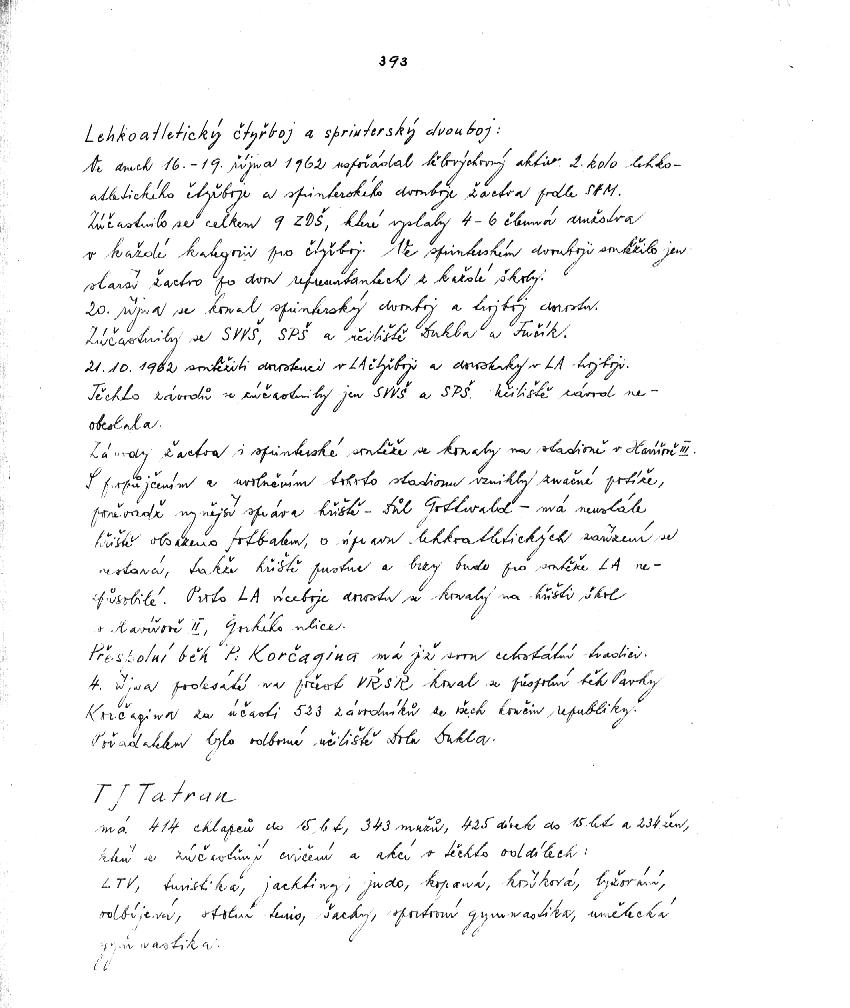 393
Lehkoatletický čtyřboj a sprinterský dvouboj:
Ve dnech 16.-19. října 1962 uspořádal tělovýchovný aktiv 2. kolo lehko-
atletického čtyřboje a sprinterského dvouboje žactva podle STM.
Zúčastnilo se celkem 9 ZDŠ, které vyslaly 4-6 členná družstva
v každé kategorii pro čtyřboj. Ve sprinterském dvouboji soutěžilo jen
starší žactvo po dvou reprezentantech z každé školy.
20. října se konal sprinterský dvouboj a trojboj dorostu.
Zúčastnily se SVVŠ, SPŠ a učiliště Dukla a Fučík.
21.10. 1962 soutěžili dorostenci v LA čtyřboji a dorostenky v LA trojboji.
Těchto závodů se zúčastnily jen SVVŠ a SPŠ. Učiliště závod ne-
obeslala.
Závody žactva i sprinterské soutěže se konaly na stadioně v Havířově III.
S propůjčením a uvolněním tohoto stadionu vznikly značné potíže,
poněvadž nynější správa hřiště - Důl Gottwald - má neustále
hřiště obsazeno fotbalem, o úpravu lehkoatletických zařízení se
nestará, takže hřiště pustne a brzy bude pro soutěže LA ne-
způsobilé. Proto LA víceboje dorostu se konaly na hřišti škol
v Havířově II, Gorkého ulice.
Přespolní běh P. Korčagina má již svou celostátní tradici.
4. října podesáté na počest VŘSR konal se přespolní běh Pavky
Korčagina za účasti 523 závodníků ze všech končin republiky.
Pořadatelem bylo odborné učiliště Dolu Dukla.
TJ Tatran
má 414 chlapců do 15 let, 343 mužů, 425 dívek do 15 let a 234 žen,
kteří se zúčastňují cvičení a akcí v těchto oddílech:
LTV, turistika, jachting, judo, kopaná, košíková, lyžování,
odbíjená, stolní tenis, šachy, sportovní gymnastika, umělecká
gymnastika.